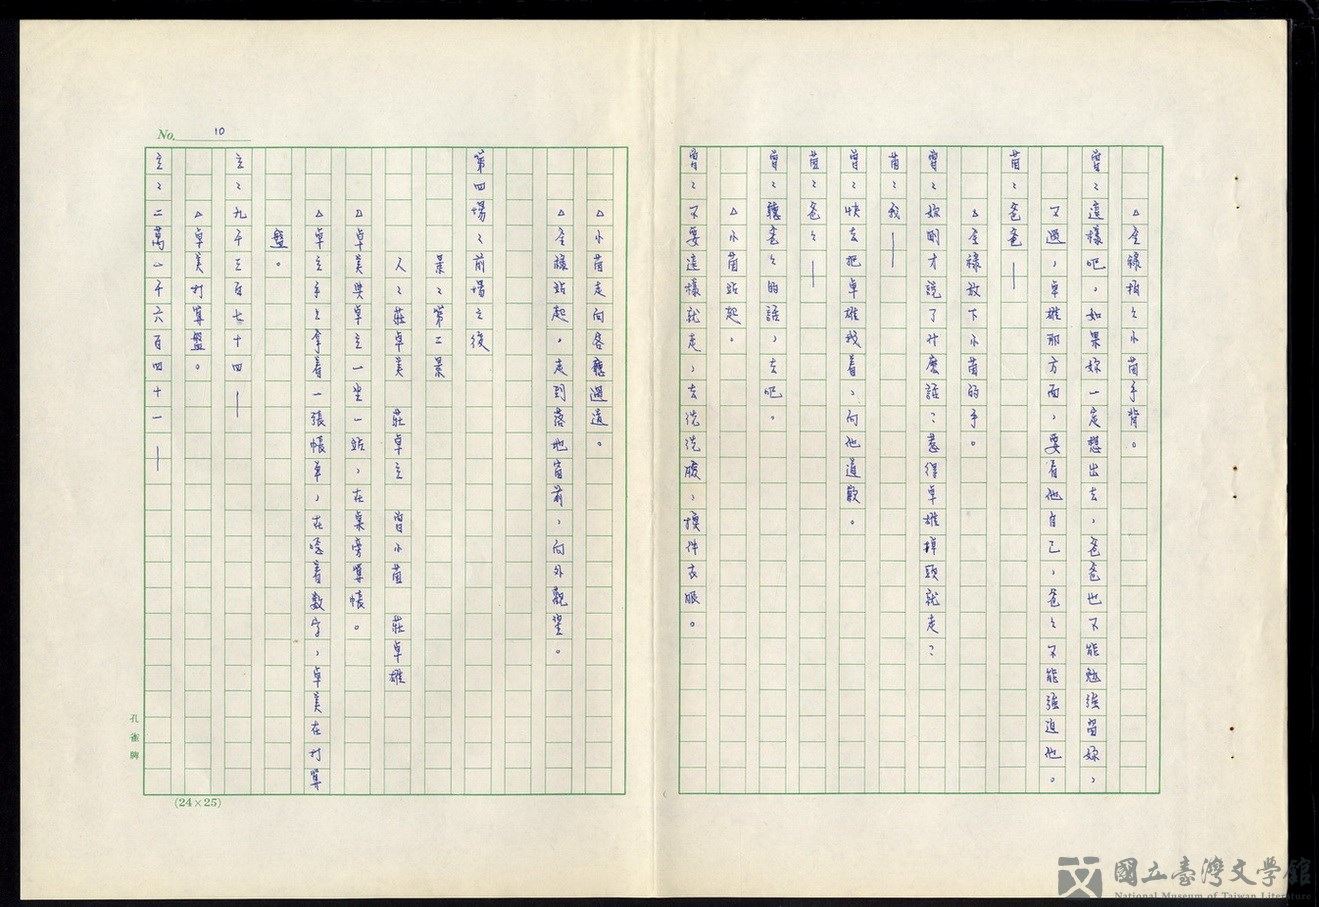 △全祿拍々小茵手背。
曾：這樣吧，如果妳一定想出去，爸爸也不能勉強留妳，
不過，卓雄那方面，要看他自己，爸々不能強迫他。
茵：爸爸—
△全祿放下小茵的手。
曾：妳剛才說了什麼話？惹得卓雄掉頭就走？
茵：我—
曾：快去把卓雄找着，向他道歉。
茵：爸々—
曾：聽爸々的話，去吧。
△小茵站起。
曾：不要這樣就走，去洗洗臉，換件衣服。
△小茵走向客廳過道。
△全祿站起，走到落地窗前，向外觀望。
第四場：前場之後
景：第二景
人：莊卓美 莊卓立 曾小茵 莊卓雄
△卓美與卓立一坐一站，在桌旁算帳。
△卓立手上拿着一張帳單，在唸着數字，卓美在打算
盤。
立：九千三百七十四—
△卓美打算盤。
立：二萬一千六百四十一—
No. 10
孔雀牌
(24×25)
國立臺灣文學館
National Museum of Taiwan Literature